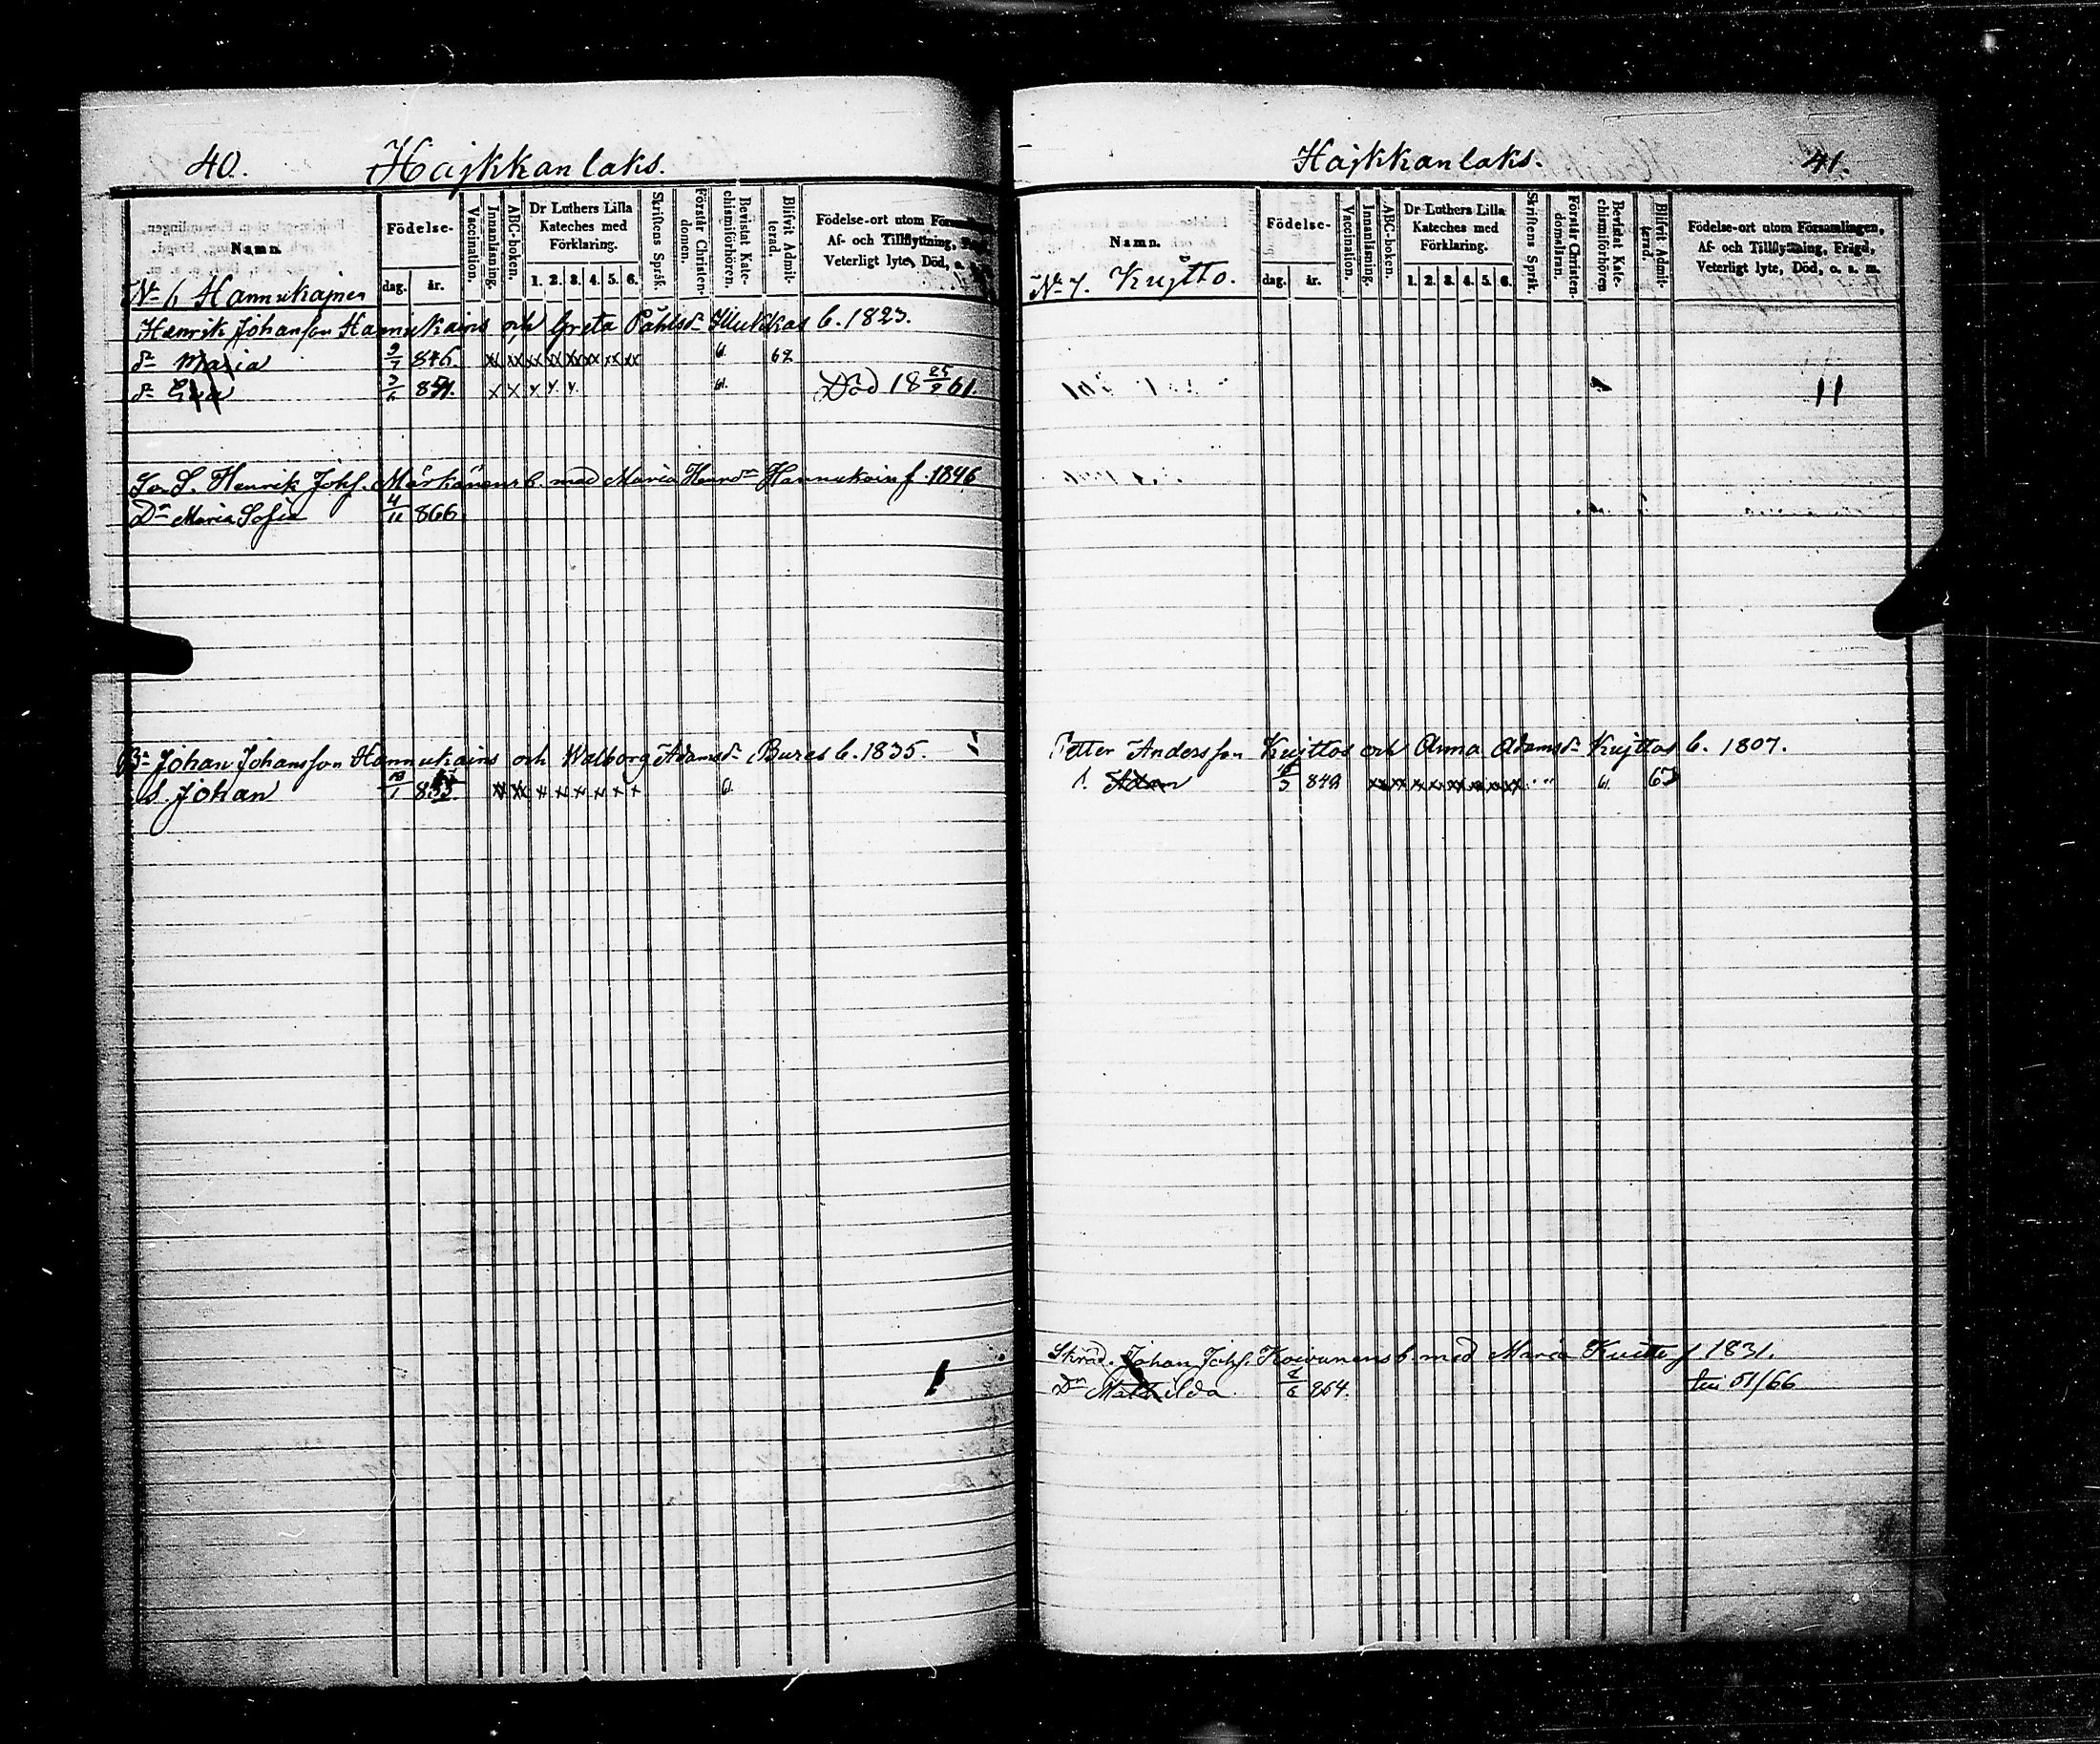 40. Hajkkanlaks.
Namn.
Födelse-
dag. år.
Vaccination.
Innanläsning.
ABC-boken.
Dr Luthers Lilla
Kateches med
Förklaring.
1. 2. 3. 4. 5. 6.
Skriftens Språk
Förstår Christen-
domen.
Bevistat Kate-
chismiförhören.
Blifvit Admit-
terad.
Födelse-ort utom
Af- och Tillflyttning,
Veterligt lyte, Död,
No 6 Hannukajnen
Henrik Johansson Hannukains och Greta Påhlsdr b. 1823.
dr Maria 9/7 846. xx xx xx xx xx xx xx xx 61. 62
dr Eva 851. x x x x x 61. Död 18 25/2 61.
Henrik Johs. b. med Maria Henrdr Hannukain f. 1846
Dr Maria Sofia 4/11 866
Johan Johansson Hannukains och Walborg Adamsdr Bures b. 1835.
S. Johan 61.
Hajkkanlaks. 41.
Namn.
Födelse-
dag. år.
Vaccination.
Innanläsning.
ABC-boken.
Dr Luthers Lilla
Kateches med
Förklaring.
1. 2. 3. 4. 5. 6.
Skriftens Språk.
Förstår Christen-
domsläran.
Bevistat Kate-
chismiförhören
Blifvit Admit-
terad.
Födelse-ort utom Församlingen,
Af- och Tillflyttning, Frägd,
Veterligt lyte, Död, o. s. m.
No 7. Kujtto.
Petter Andersson Kujttos och Anna Adamsdr Kujttos b. 1807.
S. Adam 849 61. 67
Johan Johs. Koivunens b. med Maria f. 1831.
Dr Mathilda 864. 51/66